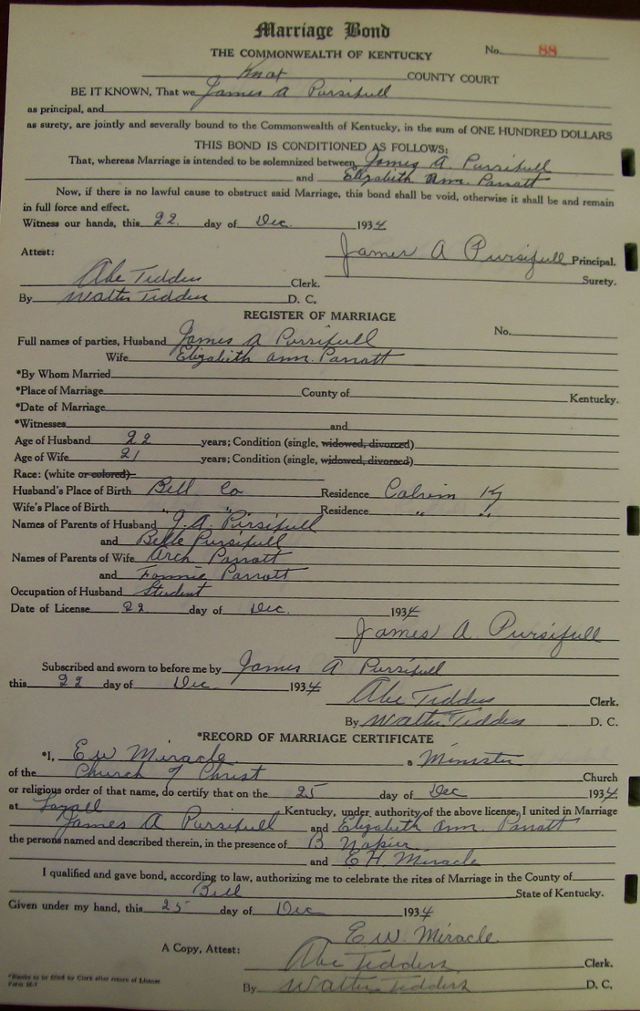 Marriage Bond
THE COMMONWEALTH OF KENTUCKY
No. 88
Knox COUNTY COURT
BE IT KNOWN, That we James A Pursifull
as principal, and
as surety, are jointly and severally bound to the Commonwealth of Kentucky, in the sum of ONE HUNDRED DOLLARS
THIS BOND IS CONDITIONED AS FOLLOWS:
That, whereas Marriage is intended to be solemnized between James A. Pursifull
and Elizabeth Ann. Parrott
Now, if there is no lawful cause to obstruct said Marriage, this bond shall be void, otherwise it shall be and remain
in full force and effect.
Witness our hands, this 22 day of Dec. 1934
Attest: James A Pursifull Principal.
Abe Tedders Clerk. Surety.
By Walter Tedders D. C.
REGISTER OF MARRIAGE
No.
Full names of parties, Husband James A Pursifull
Wife Elizabeth Ann. Parrott
*By Whom Married
*Place of Marriage County of Kentucky.
*Date of Marriage
*Witnesses and
Age of Husband 22 years; Condition (single, widowed, divorced)
Age of Wife 21 years; Condition (single, widowed, divorced)
Race: (white or colored)
Husband's Place of Birth Bell Co Residence Calvin Ky
Wife's Place of Birth " " Residence " "
Names of Parents of Husband J.A. Pursifull
and Belle Pursifull
Names of Parents of Wife Arch Parrott
and Fannie Parrott
Occupation of Husband Student
Date of License 22 day of Dec. 1934
James A. Pursifull
Subscribed and sworn to before me by James A Pursifull
this 22 day of Dec. 1934 Abe Tedders Clerk.
By Walter Tedders D. C.
*RECORD OF MARRIAGE CERTIFICATE
*I, E W Miracle a Minister
of the Church of Christ Church
or religious order of that name, do certify that on the 25 day of Dec 1934
at Loyall Kentucky, under authority of the above license, I united in Marriage
James A Pursifull and Elizabeth Ann. Parrott
the persons named and described therein, in the presence of B Napier
and E H. Miracle
I qualified and gave bond, according to law, authorizing me to celebrate the rites of Marriage in the County of
Bell State of Kentucky.
Given under my hand, this 25 day of Dec 1934
E. W. Miracle.
A Copy, Attest: Abe Tedders Clerk.
By Walter Tedders D. C.
*Blanks to be filled by Clerk after return of License